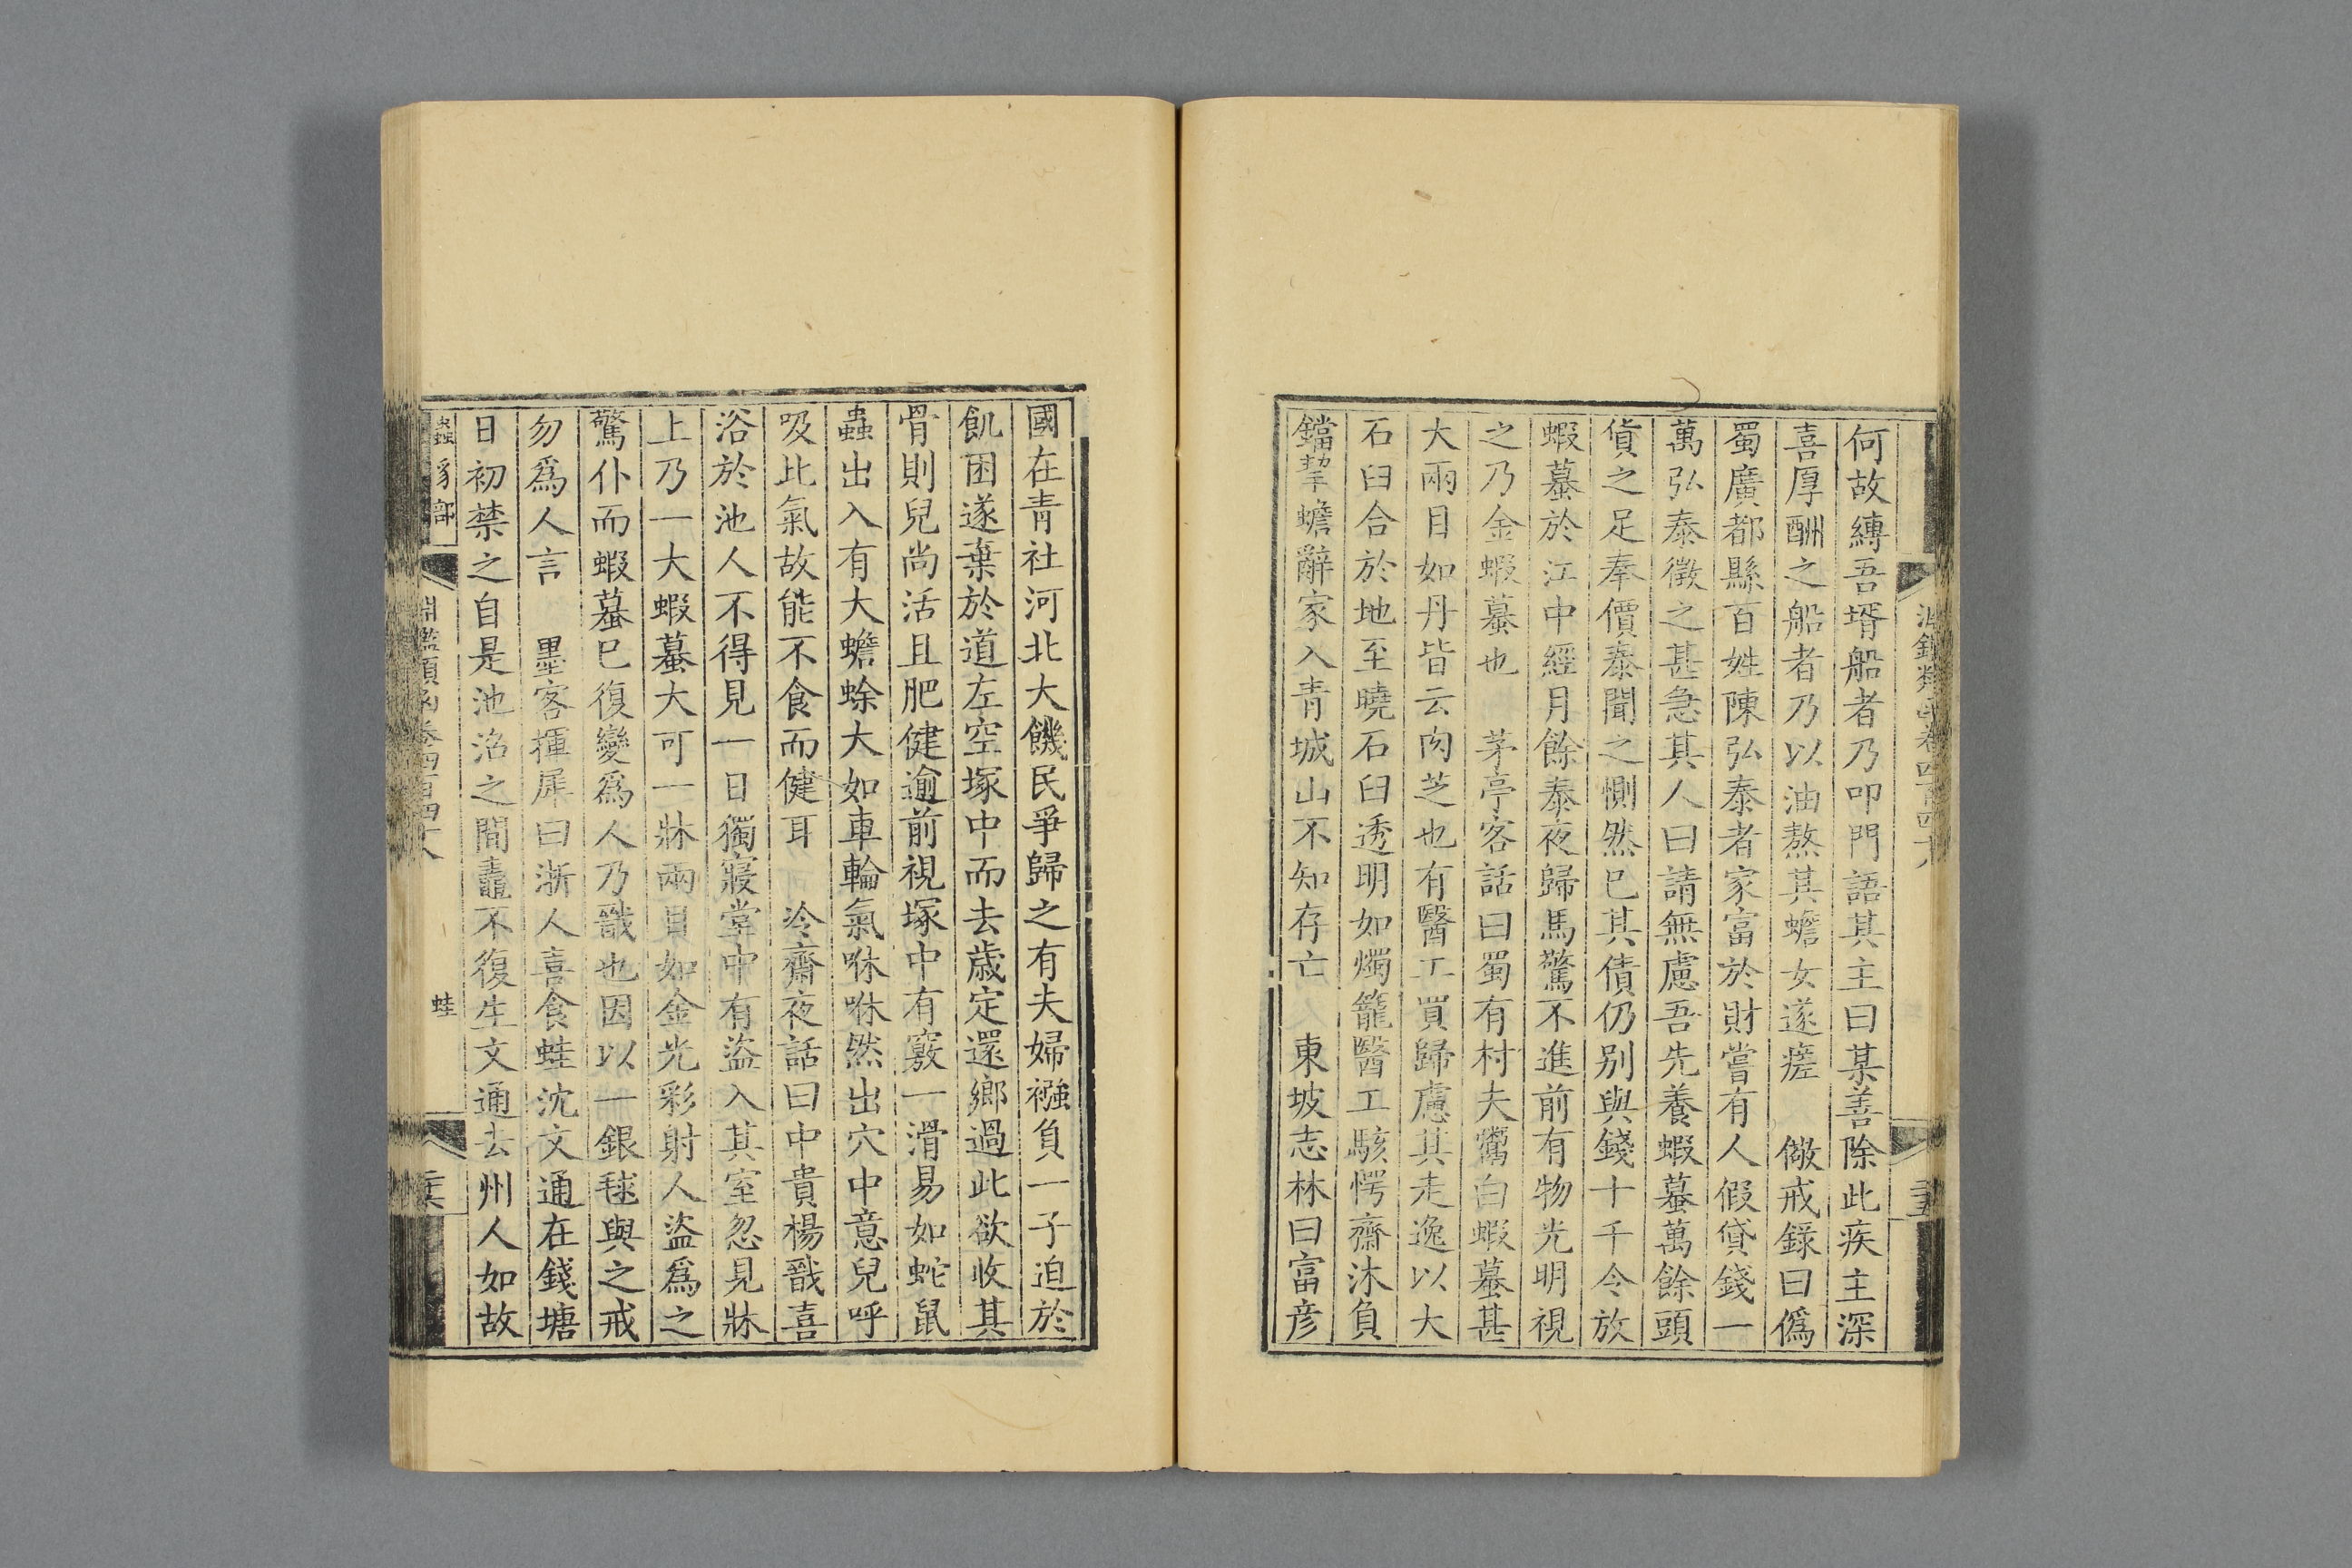 何故縛吾壻船者乃叩門語其主曰某善除此疾主深
喜厚酬之船者乃以油熬其蟾女遂瘥　儆戒錄曰僞
蜀廣都縣百姓陳弘泰者家富於財嘗有人假貸錢一
萬弘泰徵之甚急其人曰請無慮吾先養蝦蟇萬餘頭
貨之足奉價泰聞之惻然已其債仍别與錢十千令放
蝦蟇於江中經月餘泰夜歸馬驚不進前有物光明視
之乃金蝦蟇也　茅亭客話曰蜀有村夫鬻白蝦蟇甚
大兩目如丹皆云肉芝也有醫工買歸慮其走逸以大
石臼合於地至曉石臼透明如燭籠醫工駭愕齋沐負
鐺挈蟾辭家入青城山不知存亡　東坡志林曰富彦
國在青社河北大饑民爭歸之有夫婦襁負一子迫於
飢困遂棄於道左空塚中而去歲定還鄉過此欲收其
骨則兒尚活且肥健逾前視塚中有竅一滑易如蛇鼠
蟲出入有大蟾蜍大如車輪氣咻咻然出穴中意兒呼
吸此氣故能不食而健耳　冷齋夜話曰中貴楊戩喜
浴於池人不得見一日獨寢堂中有盜入其室忽見牀
上乃一大蝦蟇大可一牀兩目如金光彩射人盜爲之
驚仆而蝦蟇已復變爲人乃戩也因以一銀毬與之戒
勿爲人言　墨客揮犀曰浙人喜食蛙沈文通在錢塘
日初禁之自是池沼之間鼃不復生文通去州人如故
蟲豸部
淵鑑類函卷四百四十八
蛙